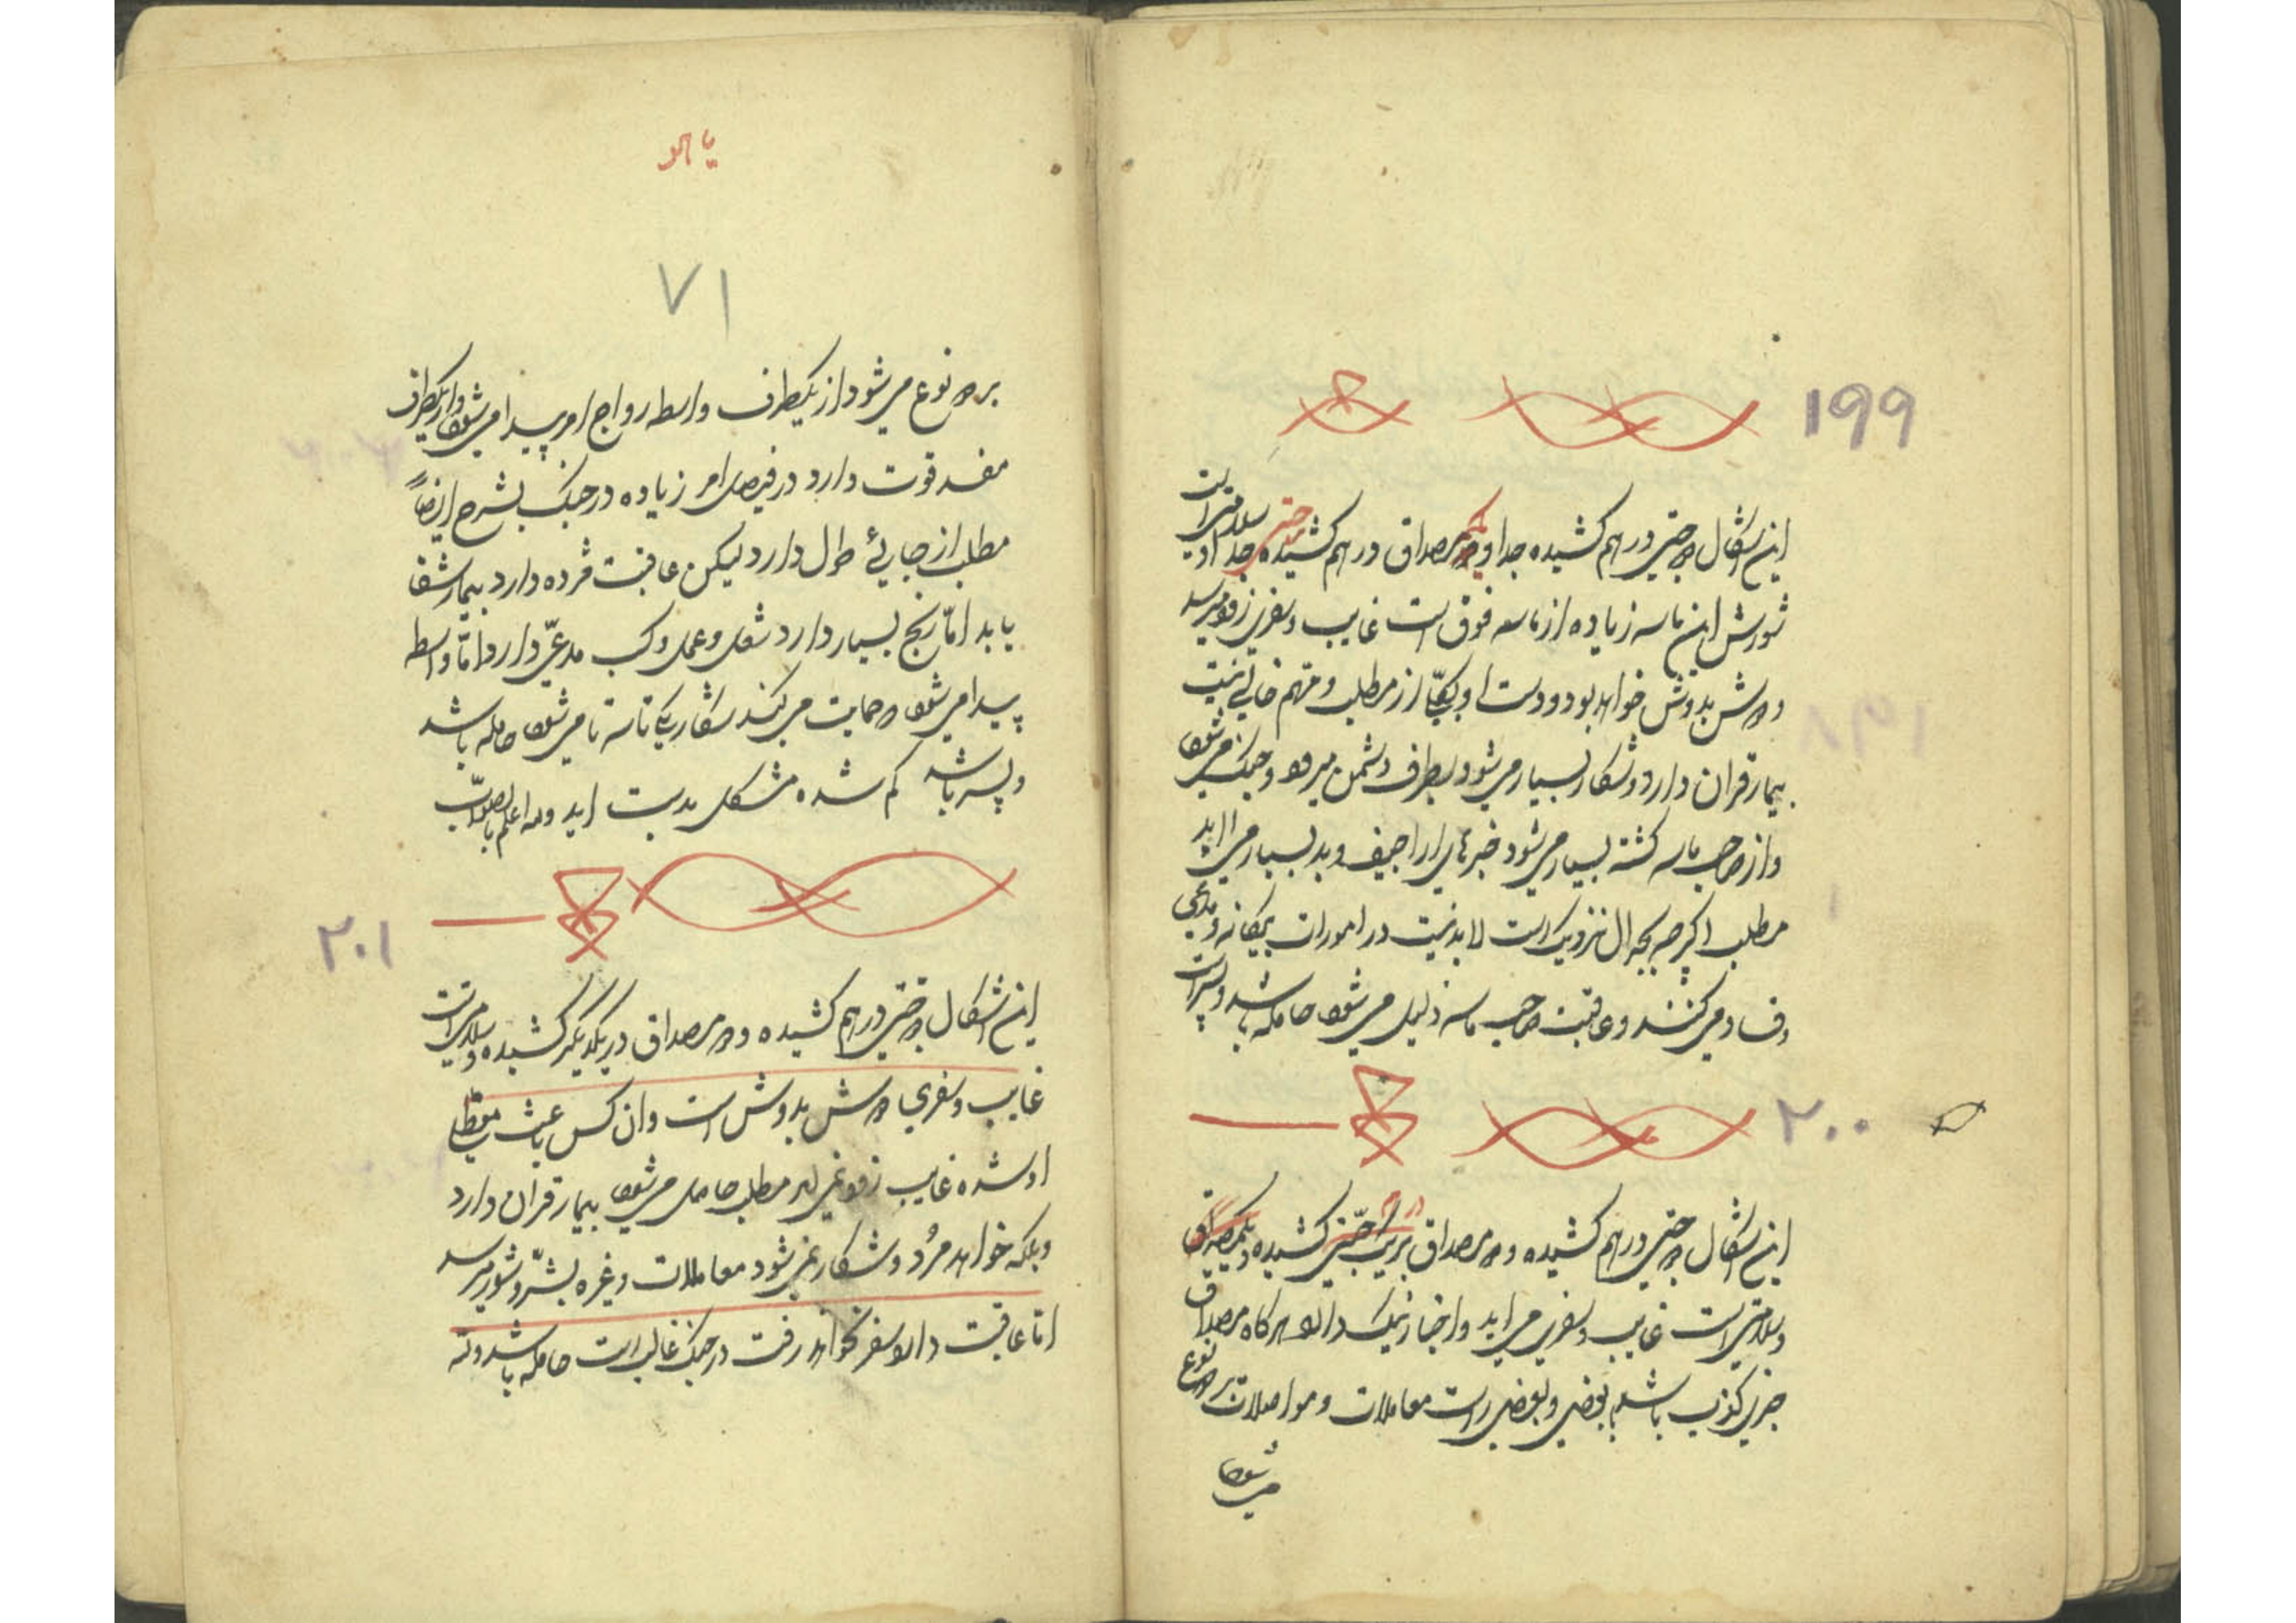 ۱۹۹
این اشکال دو جنتی در هم کشیده جدا و دو مصداق در هم کشیده جدا و سلامتی است
شورش این ماسه زیاده از ماسه فوق است غایب و سفری زود میرسد
دوش بدوش خواهد بود و دست او بکجا از مطلب و متهم خالی نیست
بیمار قران دارد و شکار بسیار می‌شود بطرف دشمن میرود و جنک می‌شود
و از صاحب ماسه کشته بسیار می‌شود خبرهای اراجیف و بد بسیار می اید
مطلب اکرچه بجدال نزدیک است لابد نیست در امورات بیکانه و مدعی
فساد می‌کنند و عاقبت صاحب ماسه ذلیل می‌شود حامله باشد و پسر است
۲۰۰
این اشکال دو جنتی در هم کشیده و دو مصداق کشیده و
و سلامتی است غایب و سفری می اید و اخبار نیک دارد هرکاه مصداق
جزئی کذب باشد بعضی و بعضی راست معاملات و مواصلات بر دو نوع
می‌شود
یا هو
۷۱
بر دو نوع می‌شود از یکطرف واسطه رواج امر پیدا می‌شود و از یکطرف
مفسد قوت دارد در فیصل امر زیاده در جنک بشرح ایضاً
مطلب از جایی طول دارد لیکن عاقبت مژده دارد بیمار شفا
یابد امّا رنج بسیار دارد شغل و عمل و کسب مدعّی دارد امّا واسطه
پیدا می‌شود و حمایت می‌کند شکار یکی تا سه تا می‌شود حامله باشد
و پسر باشد کم شده مشکل بدست اید والله اعلم بالصّواب
۲۰۱
این اشکال دو جنتی در هم کشیده و دو مصداق در یکدیگر کشیده و سلامتی است
غایب و سفری دوش بدوش است و ان کس باعث معطلی
او شده غایب زود نمی اید مطلب حاصل می‌شود بیمار قران دارد
و بلکه خواهد مُرد و شکار نمی‌شود معاملات و غیره بشرّ و شور میرسد
امّا عاقبت دارد سفر نخواهد رفت در جنک غالب است حامله باشد و نه